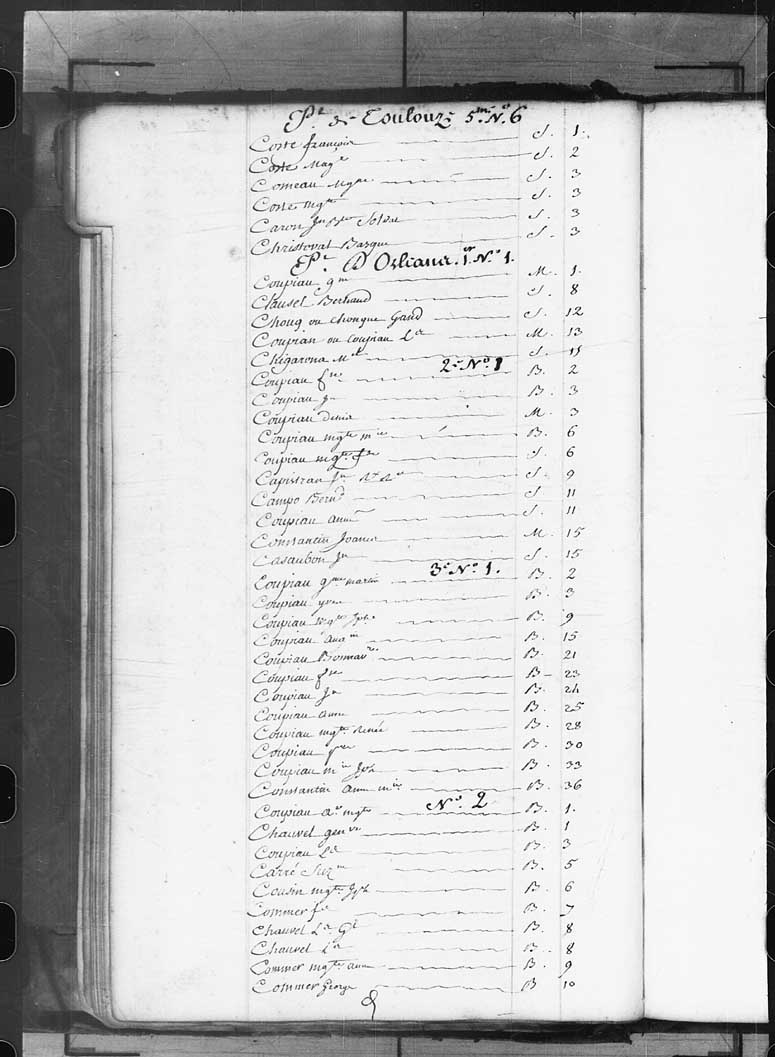 Pt. de Toulouze 5me. No. 6
Coste françois S. 1.
Coste Magte S. 2
Comeau Mgte S. 3
Coste Mgte S. 3
Caron Jn Bte Soldat S. 3
Christoval Basque S. 3
Pt. D'Orleans. 1er. No. 1.
Coupiau gme M. 1.
Clausel Bertrand S. 8
Choug ou chongue Gand S. 12
Coupian ou Coupiau Ls M. 13
Chigarona S. 15
2e No. 1
Coupiau fse B. 2
Coupiau B. 3
Coupiau denis M. 3
Coupiau mgte mie B. 6
Coupiau mgte fse S. 6
Capistran Jn S. 9
Campo Bernd S 11
Coupiau anne S. 11
Constancin Joanis M. 15
Casaubon Jn S. 15
3e. No. 1.
Coupiau gme martin B. 2
Coupiau yves B. 3
Coupiau Mgte Jphe B. 9
Coupiau B. 15
Coupiau Bonnavre B. 21
Coupiau fse B. 23
Coupiau Jn B. 24
Coupiau anne B. 25
Coupiau mgte Renée B. 28
Coupiau B. 30
Coupiau mie Jph B. 33
Constantin Anne mie B. 36
No. 2
Coupiau mgte B. 1.
Chauvel genve B. 1
Coupiau Ls B. 3
Carré Suzne B. 5
Cousin mgte Jph B. 6
Commer fs B. 7
Chauvel Ls Gl B. 8
Chauvel Ls B. 8
Commer mgte anne B. 9
Commer George B 10